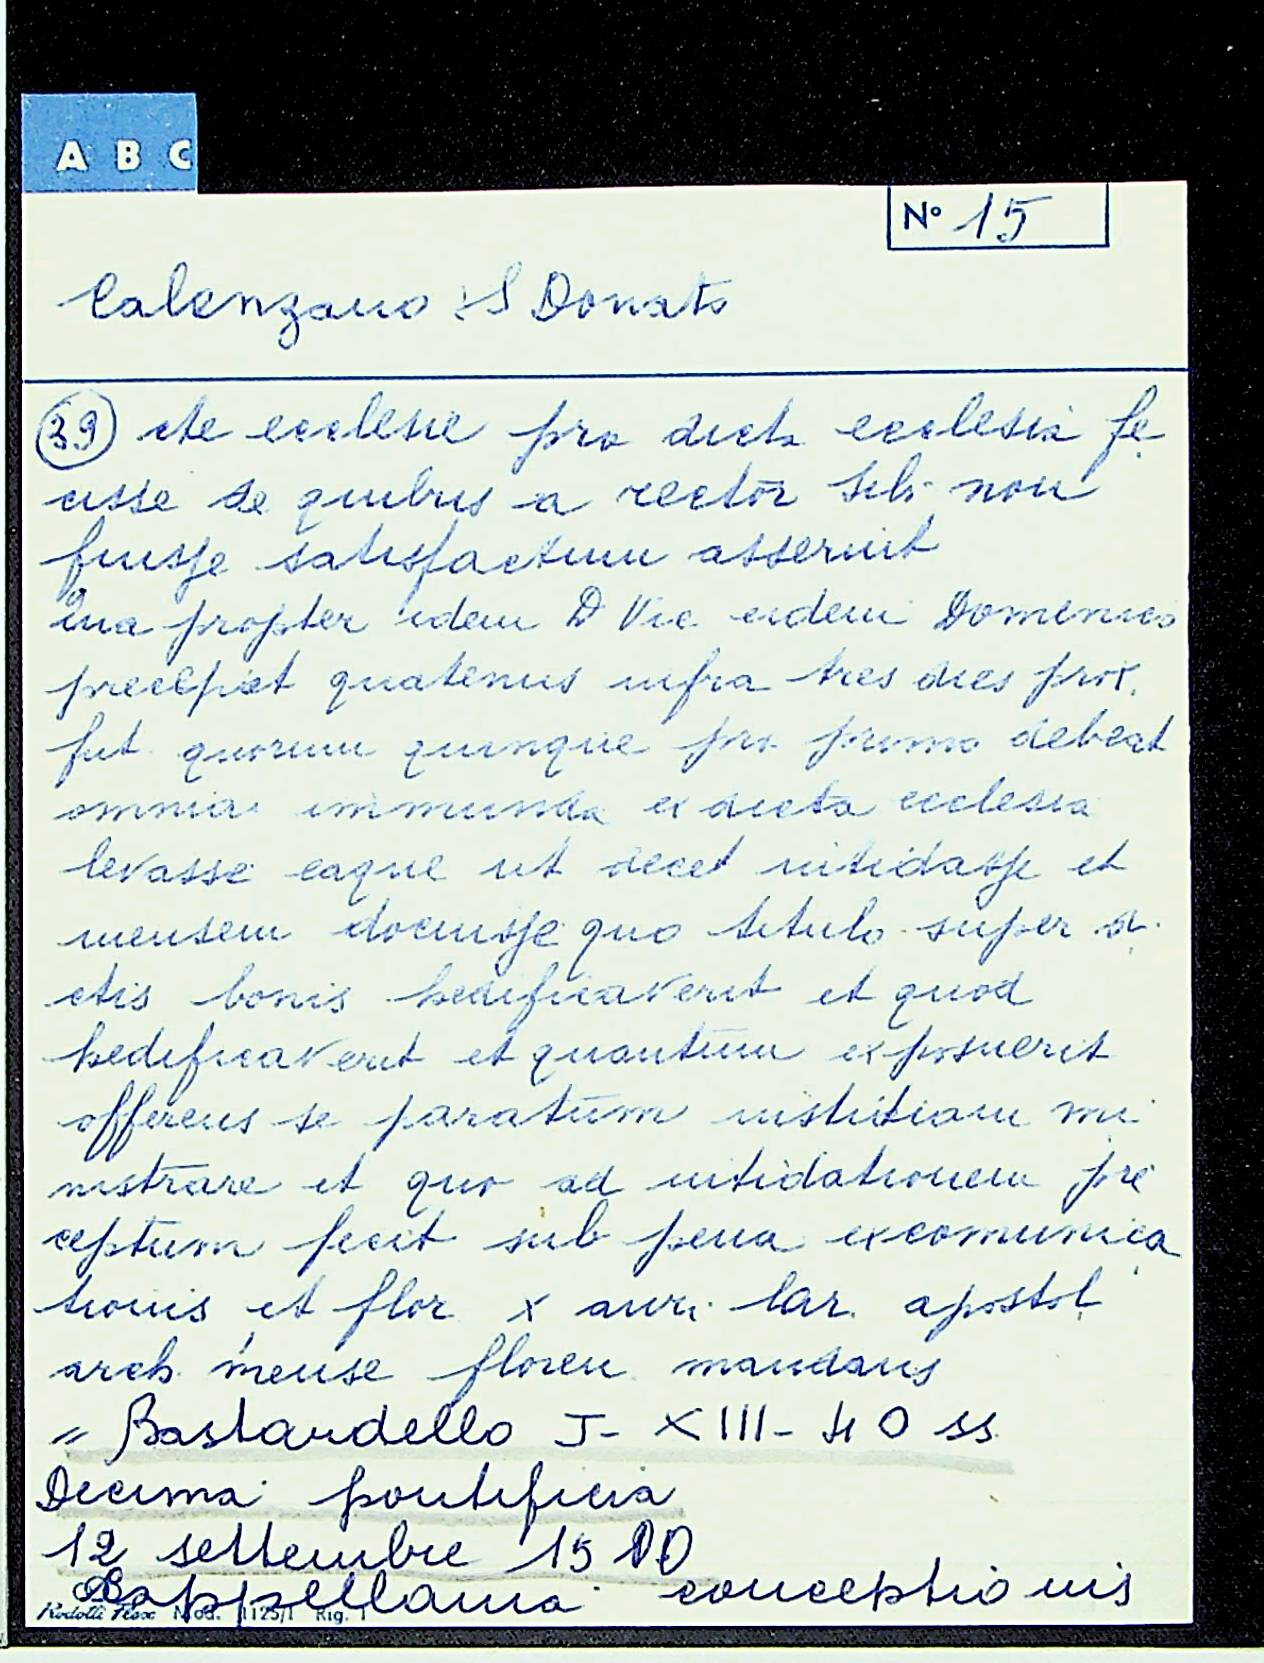 A B C
Nº 15
Calenzano : S Donato
39 cte ecclesie pro dicta ecclesia fe
cisse de quibus a rector sibi non
fuisse satisfactum asseruit
Qua propter idem D Vic eidem Domenico
precepit quatenus infra tres dies prox.
fut. quorum quinque pro primo debeat
omnia immunda ex dicta ecclesia
levasse eaque ut decet nitidasse et
mensem docuisse quo titulo super di
ctis bonis hedificaverit et quod
hedificaverit et quantum exposuerit
offerens se paratum iustitiam mi
nistrare et quo ad nitidationem pre
ceptum fecit sub pena excomunica
tionis et flor x auri lar. apostol
arch. mense floren. mandans
" Bastardello J - XIII - 40 ss
Decima pontificia
12 settembre 1500
Cappellania conceptionis
Mod. 1125/1 Rig. 1